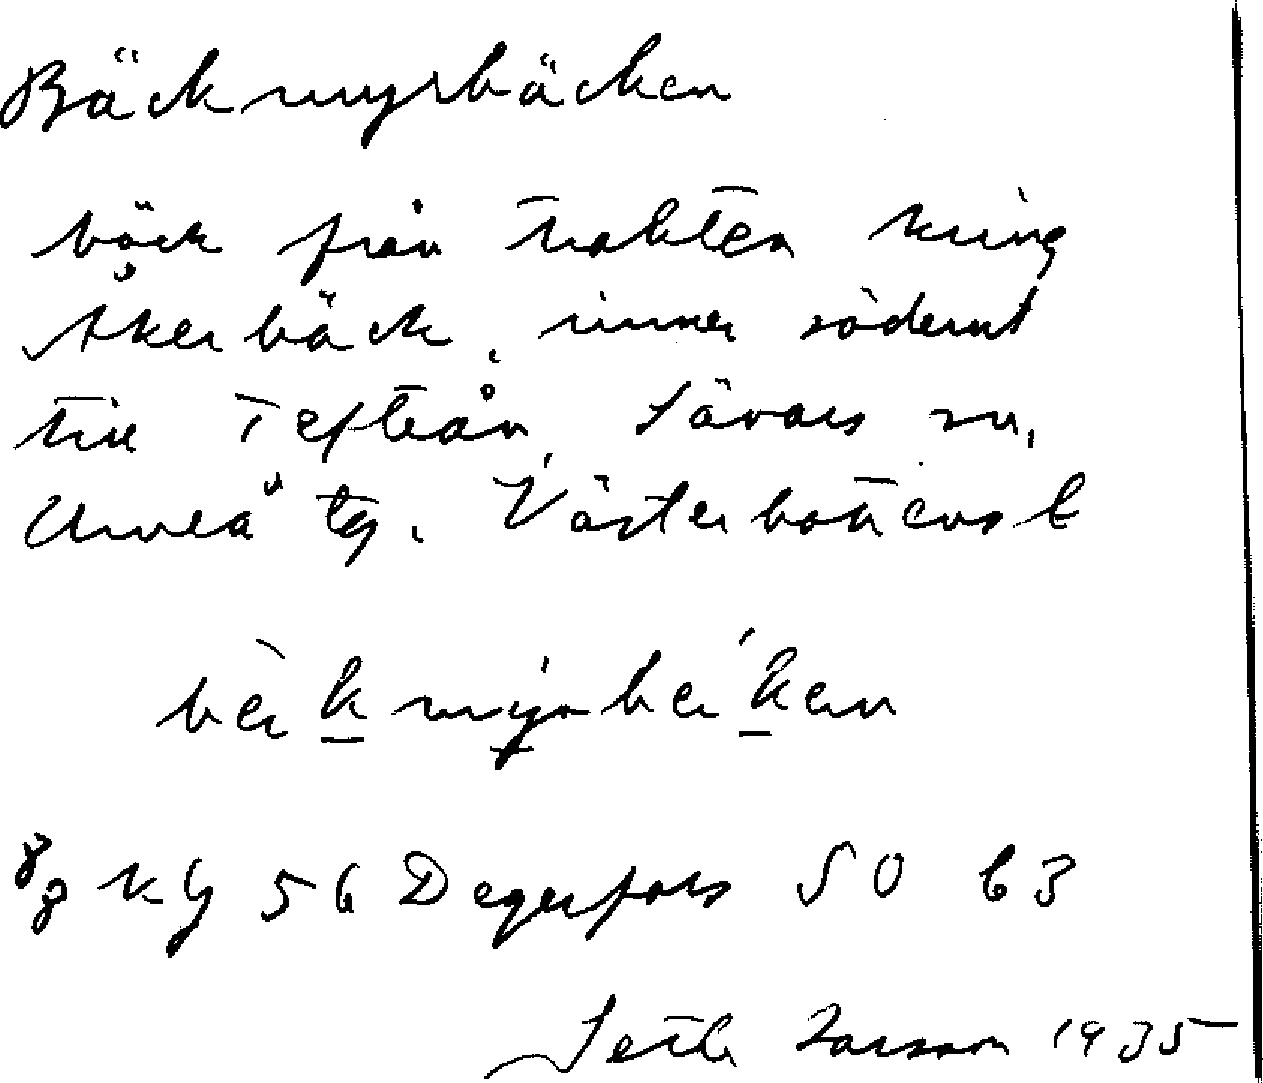 Bäckmyrbäcken
bäck från trakten kring
Åkerbäck, rinner söderut
till Tefteån, Sävars sn,
Umeå tg. Västerbottens l
8/8 kg 56 Degerfors SO 63
Seth Larsson 1935